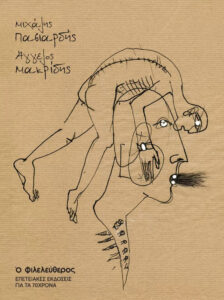 μιχάλης
πασιαρδής
Άγγελος
μακρίδης
Ο Φιλελεύθερος
ΕΠΕΤΕΙΑΚΕΣ ΕΚΔΟΣΕΙΣ
ΓΙΑ ΤΑ 70ΧΡΟΝΑ